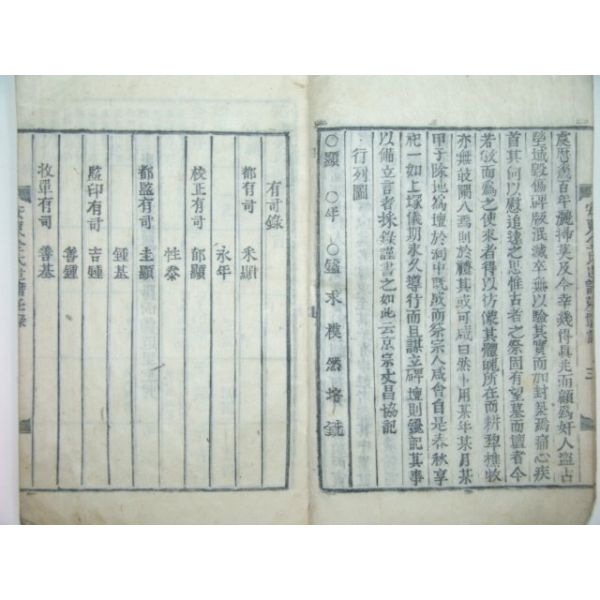 處歷盡百年灑掃莫及今幸幾得眞兆而顧爲奸人盜占
塋域毀傷碑版泯滅卒無以驗其實而加封築焉痛心疾
首其何以慰追遠之思惟古者之祭固有望墓而壇者今
若敢而爲之使來者得以彷像其體魄所在而耕犂樵牧
亦無敢闌入焉則於禮其或可咸曰然卜用某年某月某
甲子除地爲壇於洞中旣成而祭宗人咸會自是春秋享
祀一如上塚儀期永久遵行而且謀立碑壇則鑱記其事
以備立言者採錄謹書之如此云京宗丈昌協記
行列圖
○顯 ○年 ○鍾 求 模 然 培
有司錄
都有司 釆顯
永年
校正有司 郁顯
性泰
都監有司 圭顯
鍾基
監印有司 吉鍾
善鍾
收單有司 善基
三